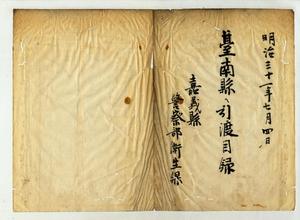 明治三十一年七月四日
臺南縣ヘ引渡目録
嘉義縣
警察部衛生課